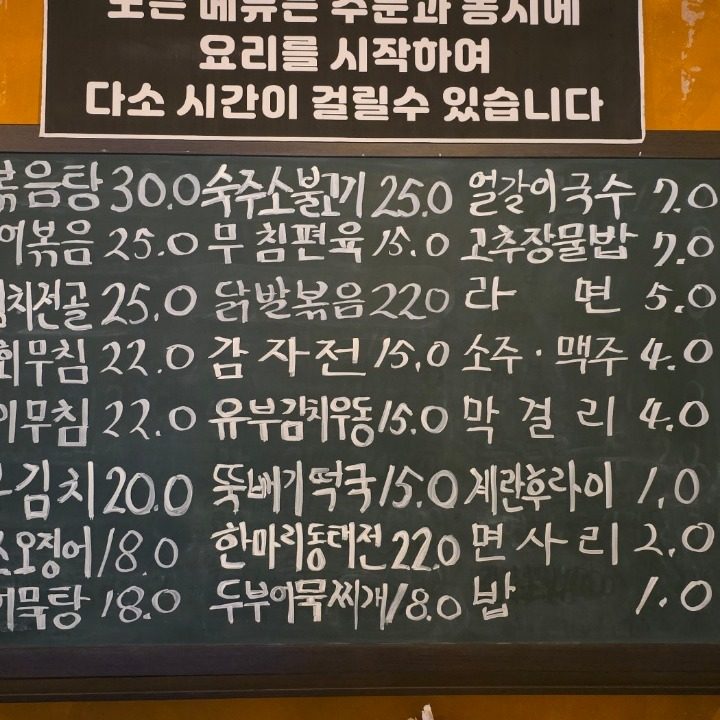 모든 메뉴는 주문과 동시에
요리를 시작하여
다소 시간이 걸릴수 있습니다
볶음탕 30.0 숙주소불고기 25.0 얼갈이국수 7.0
볶음 25.0 무침편육 15.0 고추장물밥 7.0
김치전골 25.0 닭발볶음 220 라면 5.0
회무침 22.0 감자전 15.0 소주·맥주 4.0
이무침 22.0 유부김치우동 15.0 막걸리 4.0
김치 20.0 뚝배기떡국 15.0 계란후라이 1.0
오징어 18.0 한마리동태전 22.0 면사리 2.0
어묵탕 18.0 두부어묵찌개 18.0 밥 1.0